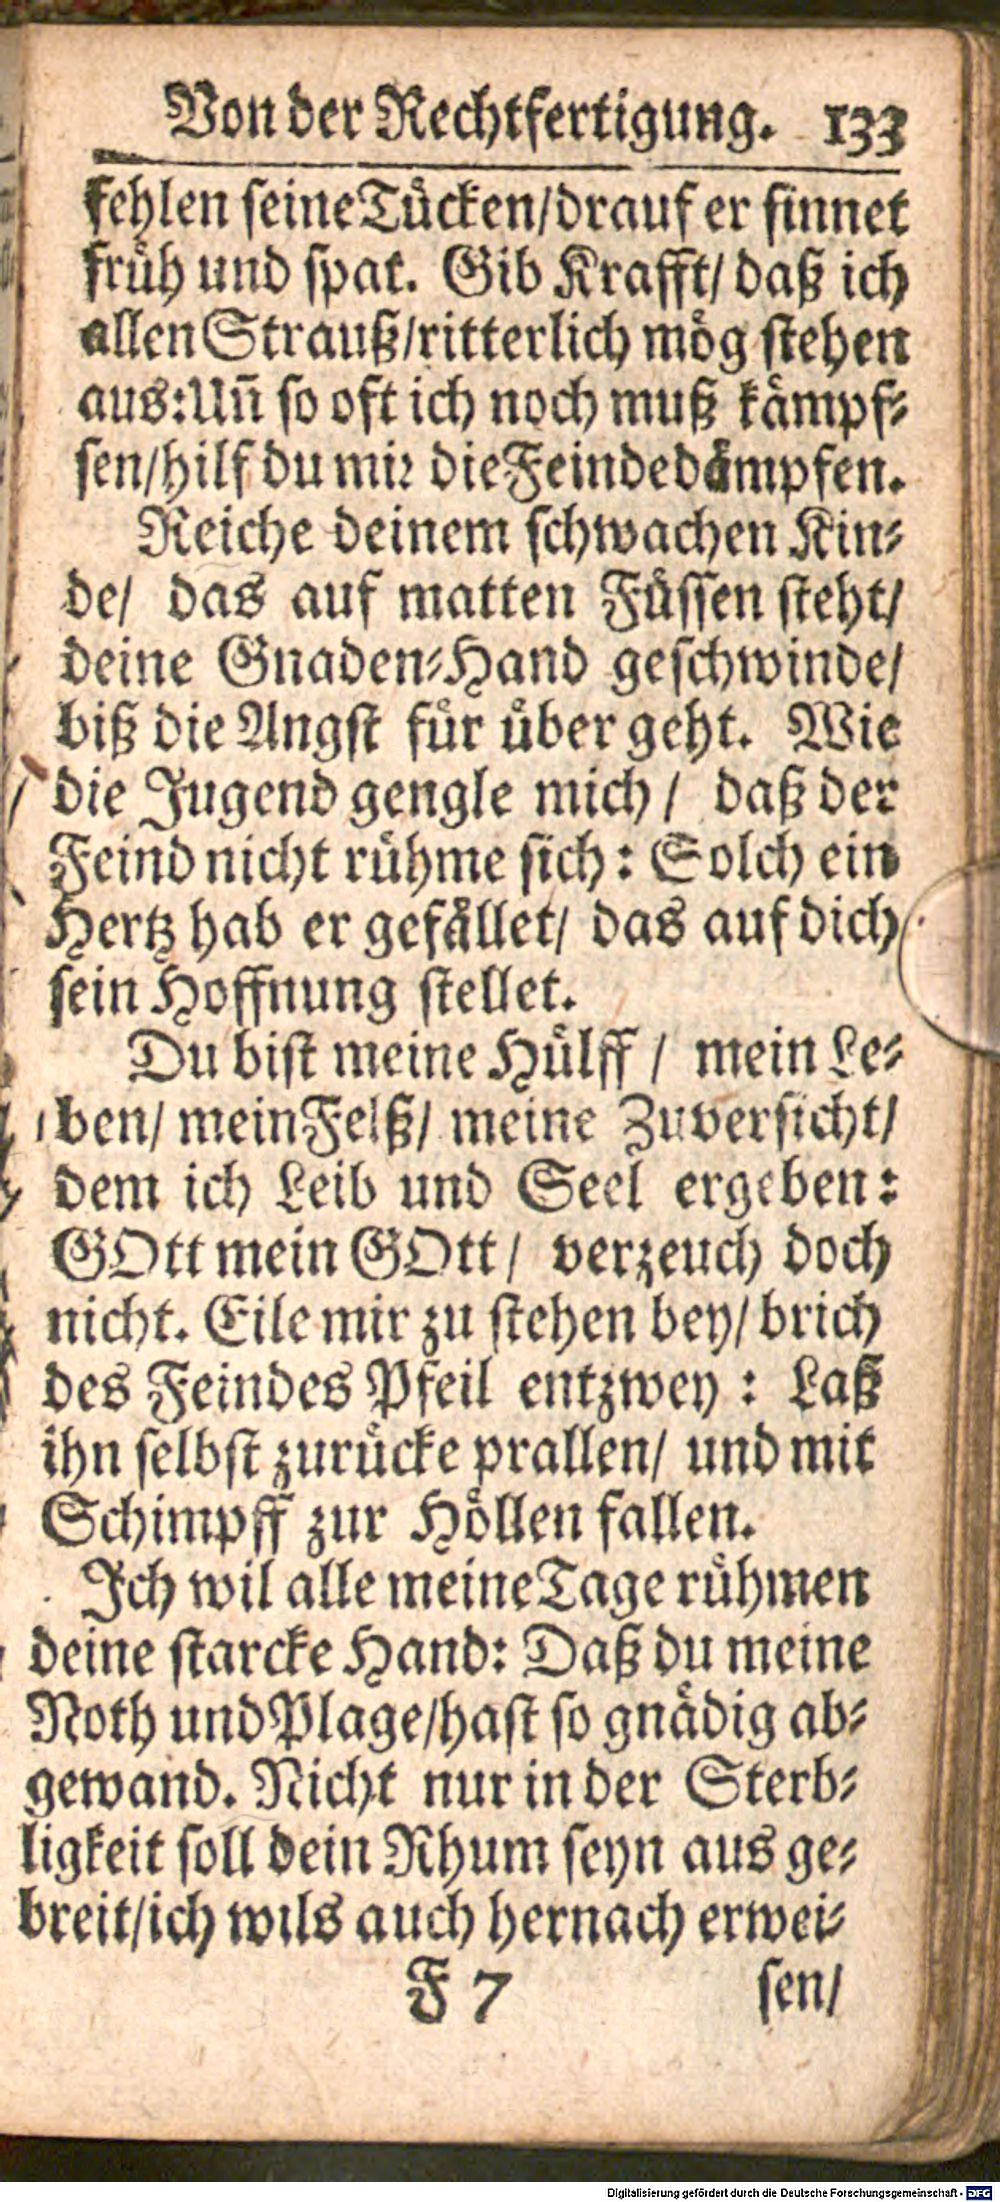 Von der Rechtfertigung. 133
fehlen seine Tücken/drauf er sinnet
früh und spat. Gib Krafft/ daß ich
allen Strauß/ritterlich mög stehen
aus:Uñ so oft ich noch muß kämpf⸗
sen/hilf du mir die Feinde dämpfen.
Reiche deinem schwachen Kin⸗
de/ das auf matten Füssen steht/
deine Gnaden⸗Hand geschwinde/
biß die Angst für über geht. Wie
die Jugend gengle mich / daß der
Feind nicht rühme sich: Solch ein
Hertz hab er gefället/ das auf dich
sein Hoffnung stellet.
Du bist meine Hülff / mein Le⸗
ben/ mein Felß/ meine Zuversicht/
dem ich Leib und Seel ergeben:
GOtt mein GOtt / verzeuch doch
nicht. Eile mir zu stehen bey/ brich
des Feindes Pfeil entzwey : Laß
ihn selbst zurücke prallen/ und mit
Schimpff zur Höllen fallen.
Ich wil alle meine Tage rühmen
deine starcke Hand: Daß du meine
Noth und Plage/hast so gnädig ab⸗
gewand. Nicht nur in der Sterb⸗
ligkeit soll dein Rhum seyn aus ge⸗
breit/ich wils auch hernach erwei⸗
F 7 sen/
Digitalisierung gefördert durch die Deutsche Forschungsgemeinschaft - DFG